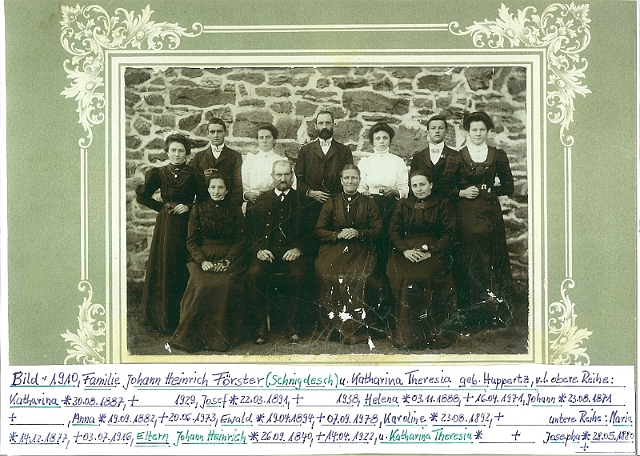 Bild ~ 1910, Familie Johann Heinrich Förster (Schnigdesch) u. Katharina Theresia geb. Huppertz, v.l. obere Reihe:
Katharina *30.08.1887, + 1929, Josef *22.03.1891, + 1938, Helena *03.11.1888, +16.04.1971, Johann *23.08.1871
+ , Anna *19.09.1882, +20.06.1973, Ewald *19.04.1894, +07.09.1978, Karoline *23.08.1892, + untere Reihe: Maria
*14.12.1877, +03.07.1916, Eltern Johann Heinrich *26.09.1840, +14.04.1922, u. Katharina Theresia * + Josepha *28.05.1880
+